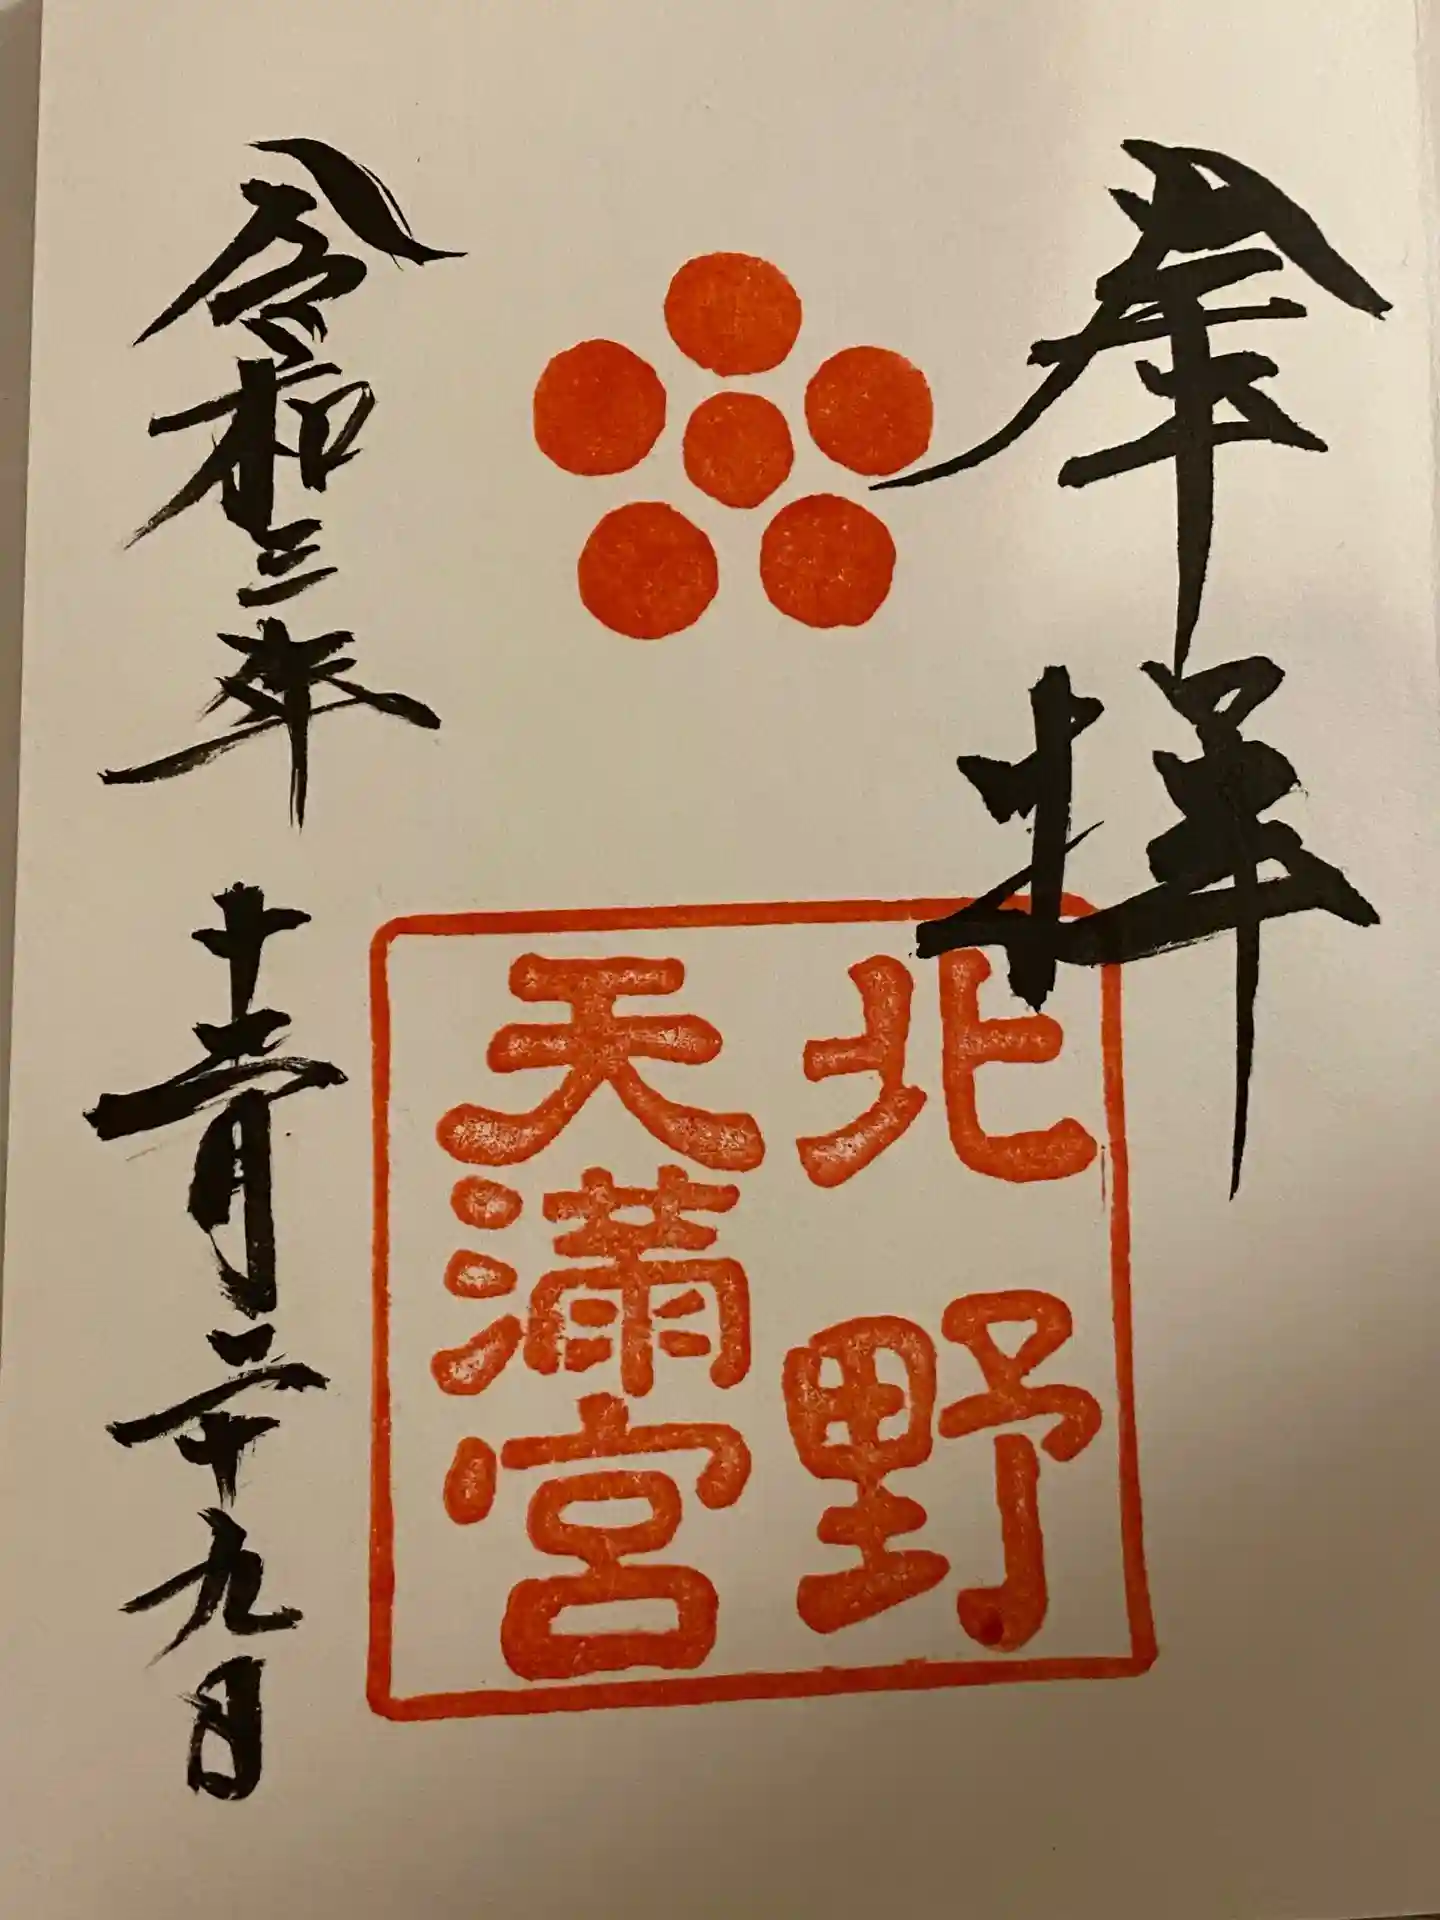 奉拝
北野
天満宮
令和三年十二月二十九日